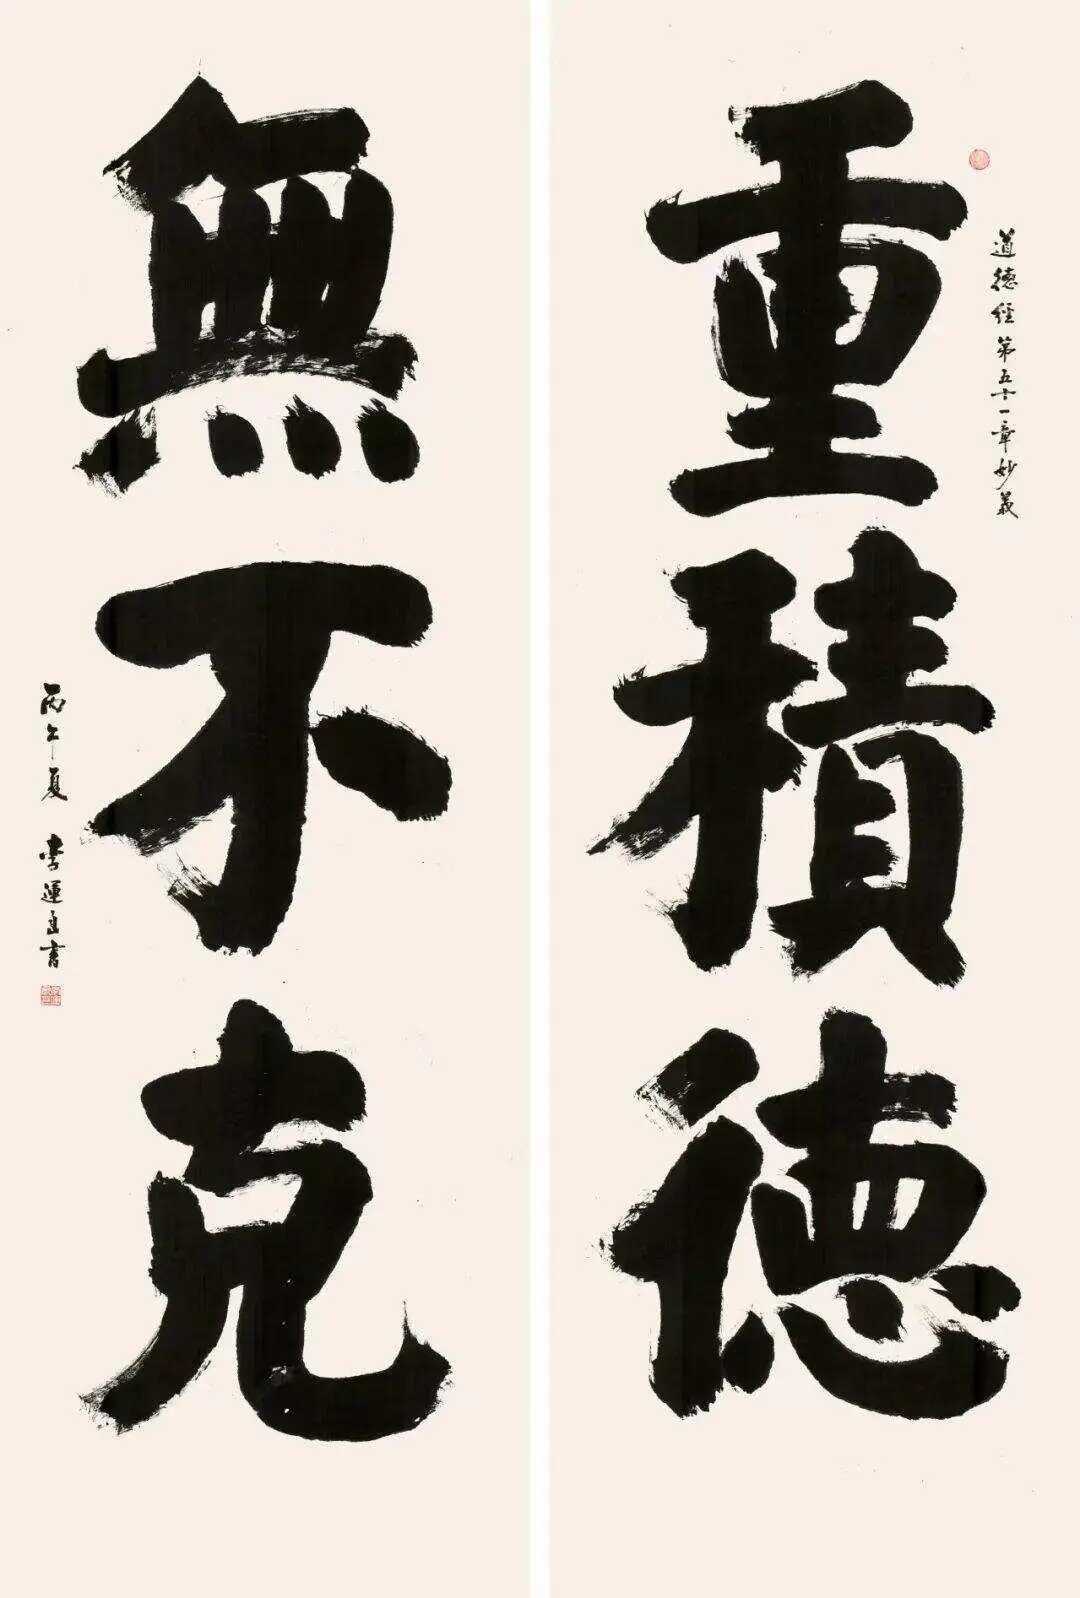 道德经第五十一章妙义
重積德
無不克
丙午夏 李運良書